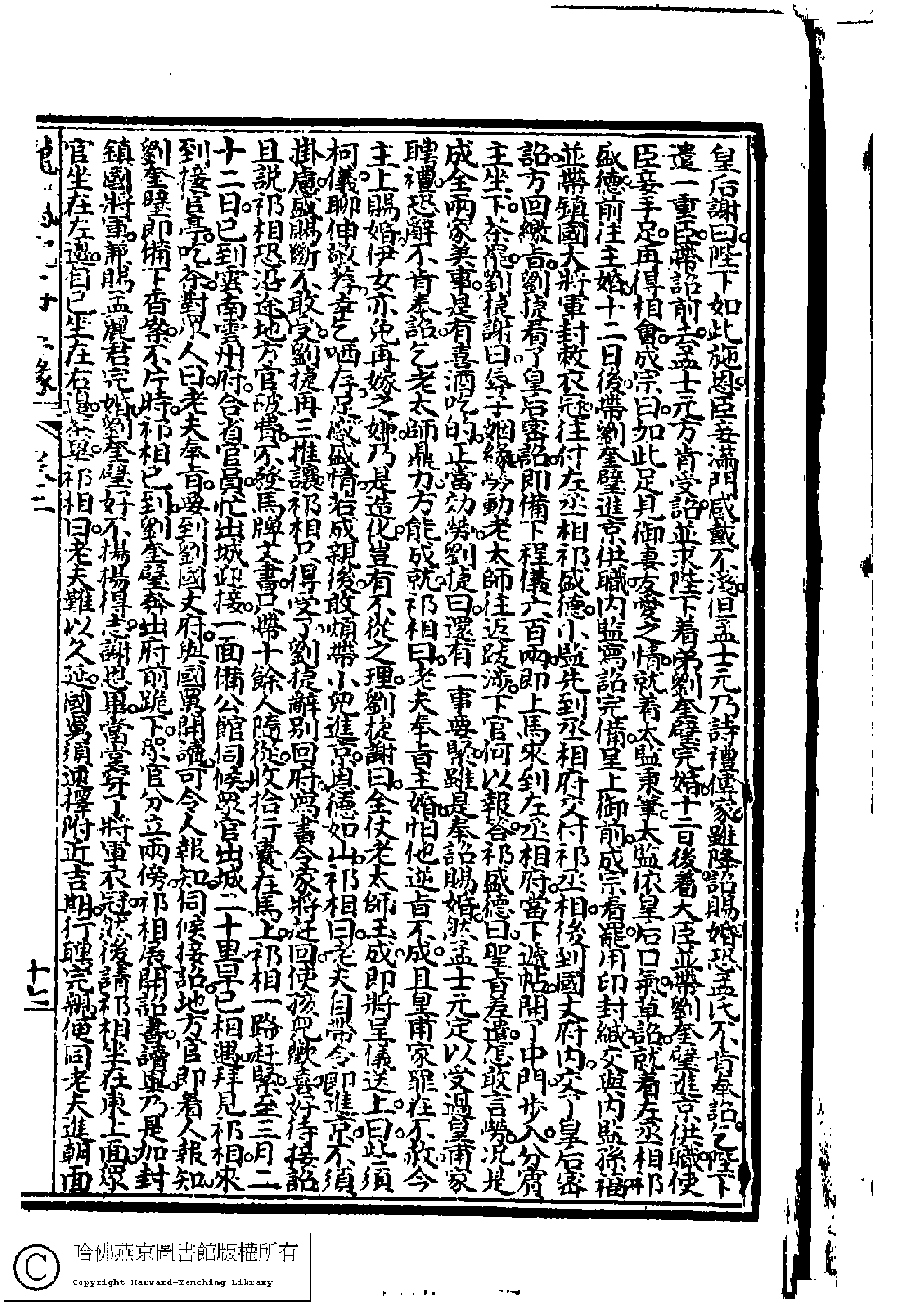 皇后謝曰陛下如此施恩臣妾滿門感戴不淺但孟士元乃詩禮傳家雖降詔賜婚恐孟氏不肯奉詔乞陛下
遣一重臣帶詔前去孟士元方肯受詔並求陛下着弟劉奎璧完婚十二日後着大臣並帶劉奎璧進京供職使
臣妾手足再得相會成宗曰如此足見御妻友愛之情就着太監秉筆太監依皇后口氣草詔就着左丞相祁
盛德前往主婚十二日後帶劉奎璧進京供職內監寫詔完備呈上御前成宗看罷用印封緘交與內監孫福
並帶鎮國大將軍封敕衣冠往付左丞相祁盛德小監先到丞相府交付祁丞相後到國丈府內交了皇后密
詔方回繳旨劉捷看了皇后密詔即備下程儀六百兩即上馬來到左丞相府當下遞帖開了中門步入分賓
主坐下茶罷劉捷謝曰爲子姻緣勞動老太師往返跋涉下官何以報答祁盛德曰聖旨差遣怎敢言勞况是
成全兩家美事是有喜酒吃的正當効勞劉捷曰還有一事要緊雖是奉詔賜婚然孟士元定以受過皇甫家
聘禮恐辭不肯奉詔乞老太師鼎力方能成就祁相曰老夫奉旨主婚怕他逆旨不成且皇甫家罪在不赦今
主上賜婚伊女亦免再嫁之嫌乃是造化豈有不從之理劉捷謝曰全仗老太師玉成即將呈儀送上曰此須
柯儀聊伸敬孝幸乞哂存祁感盛情若成親後敢煩帶小兒進京恩德如山祁相曰老夫自帶令郎進京不須
掛慮盛賜斷不敢受劉捷再三推讓祁相只得受了劉捷辭別回府寫書令家將赶回使孩兒歡喜好待接詔
且說祁相恐沿途地方官破費不發馬牌文書只帶十餘人隨從收拾行囊在馬上祁相一路赶緊至三月二
十二日已到雲南雲州府合省官員忙出城迎接一面備公館伺候眾官出城二十里早已相遇拜見祁相來
到接官亭吃茶對眾人曰老夫奉旨要到劉國丈府與國舅開讀可令人報知伺候接詔地方官即着人報知
劉奎璧即備下香案不片時祁相已到劉奎璧奔出府前跪下眾官分立兩傍祁相展開詔書讀與乃是加封
鎮國將軍兼賜孟麗君完婚劉奎璧好不揚揚得志謝恩畢當堂穿了將軍衣冠然後請祁相坐在東上面眾
官坐在左邊自己坐在右邊茶畢祁相曰老夫難以久延國舅須選擇附近吉期行聘完親便同老夫進朝面
緣
卷二
十二
哈佛燕京圖書館版權所有
Copyright Harvard-Yenching Library